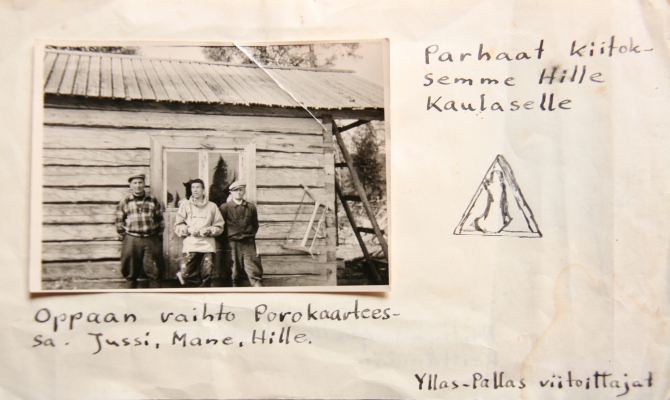 Parhaat kiitok-
semme Hille
Kaulaselle
Oppaan vaihto Porokaartees-
sa. Jussi, Mane, Hille.
Yllas-Pallas viitoittajat